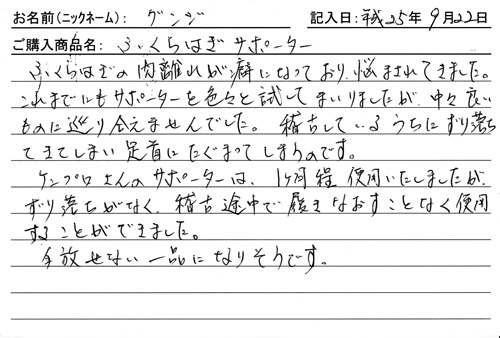 お名前(ニックネーム): ゲンジ 記入日: 平成25年9月22日
ご購入商品名: ふくらはぎサポーター
ふくらはぎの肉離れが癖になっており、悩まされてきました。
これまでにもサポーターを色々と試してまいりましたが、中々良い
ものに巡り会えませんでした。稽古しているうちにずり落ち
てきてしまい足首にたぐまってしまうのです。
ケンプロさんのサポーターは、1ヶ月程使用いたしましたが、
ずり落ちがなく、稽古途中で履きなおすことなく使用
することができました。
手放せない一品になりそうです。